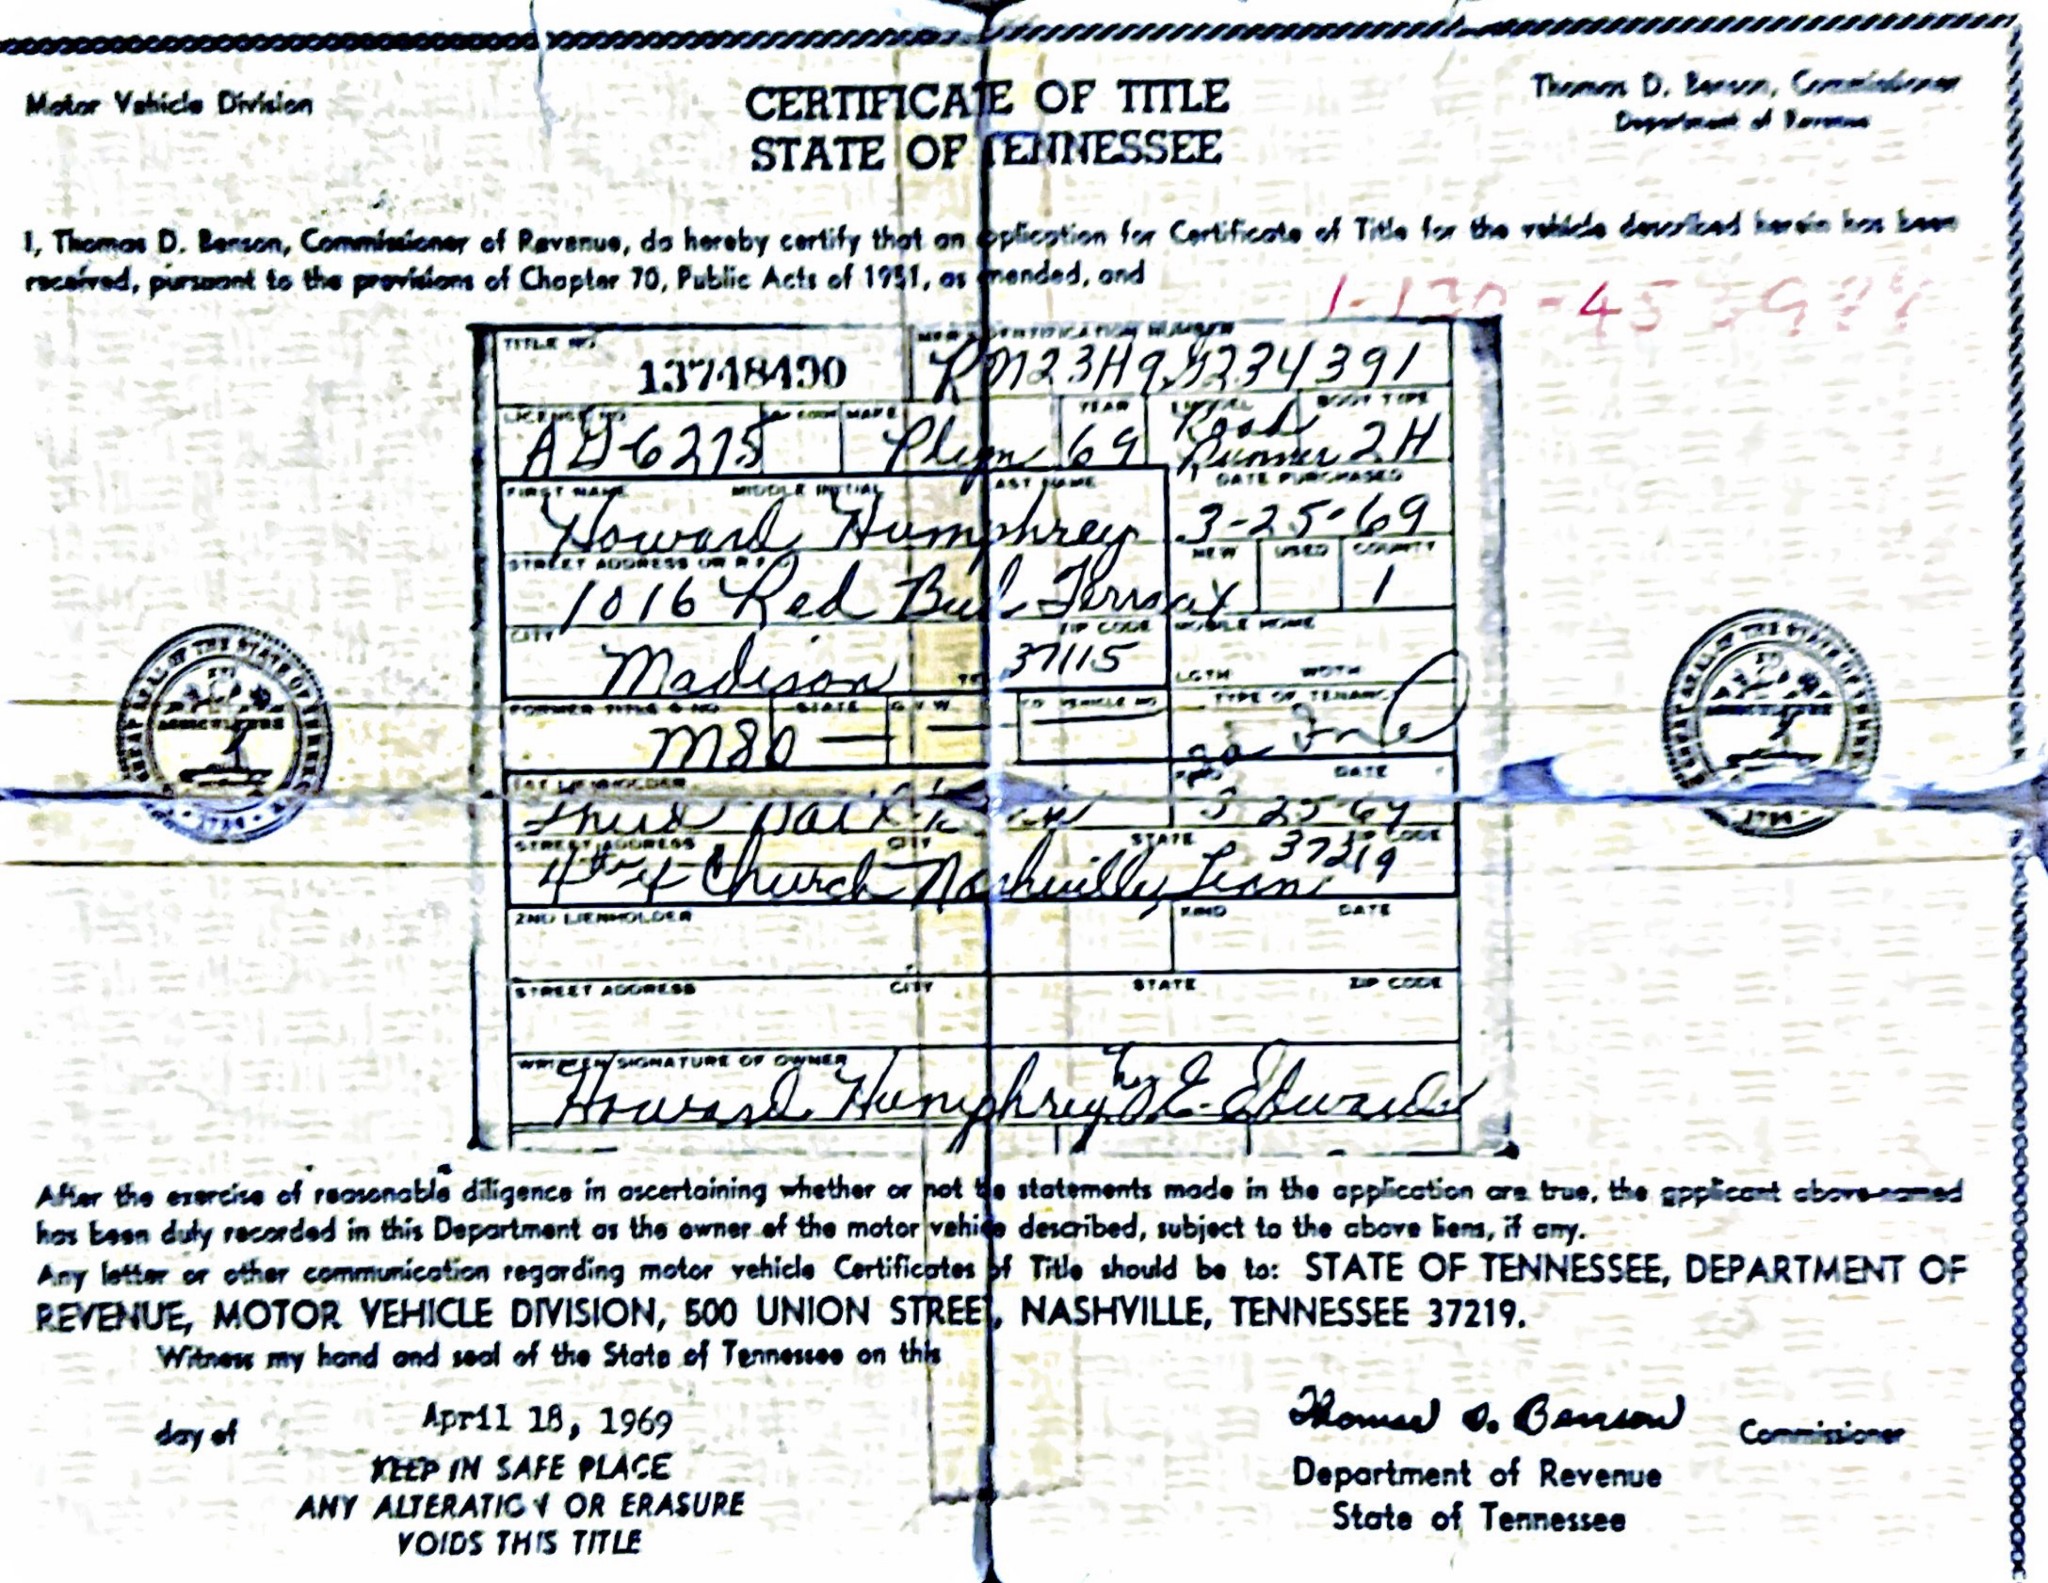 Motor Vehicle Division
CERTIFICATE OF TITLE
STATE OF TENNESSEE
Thomas D. Benson, Commissioner
Department of Revenue
I, Thomas D. Benson, Commissioner of Revenue, do hereby certify that an application for Certificate of Title for the vehicle described herein has been
received, pursuant to the provisions of Chapter 70, Public Acts of 1951, as amended, and
TITLE NO.
IDENTIFICATION NUMBER
13748490
RM23H9G234391
LICENSE NO. MAKE YEAR MODEL BODY TYPE
6275 Plym 69 Road Runner 2H
FIRST NAME MIDDLE INITIAL LAST NAME DATE PURCHASED
Howard Humphrey 3-25-69
STREET ADDRESS OR R.F.D. NEW USED COUNTY
1016 Red Bud Terrace X 1
CITY ZIP CODE MOBILE HOME
Madison 37115
LGTH WDTH
FORMER TITLE & NO. STATE G.V.W. VEHICLE NO. TYPE OF TENANCY
MSO — —
1ST LIENHOLDER KIND DATE
Third 3 25-69
STREET ADDRESS CITY STATE ZIP CODE
4th & Church Nashville, Tenn. 37219
2ND LIENHOLDER KIND DATE
STREET ADDRESS CITY STATE ZIP CODE
WRITTEN SIGNATURE OF OWNER
Howard Humphrey E. Edwards
After the exercise of reasonable diligence in ascertaining whether or not the statements made in the application are true, the applicant above-named
has been duly recorded in this Department as the owner of the motor vehicle described, subject to the above liens, if any.
Any letter or other communication regarding motor vehicle Certificates of Title should be to: STATE OF TENNESSEE, DEPARTMENT OF
REVENUE, MOTOR VEHICLE DIVISION, 500 UNION STREET, NASHVILLE, TENNESSEE 37219.
Witness my hand and seal of the State of Tennessee on this
day of April 18, 1969
KEEP IN SAFE PLACE
ANY ALTERATION OR ERASURE
VOIDS THIS TITLE
Thomas D. Benson Commissioner
Department of Revenue
State of Tennessee